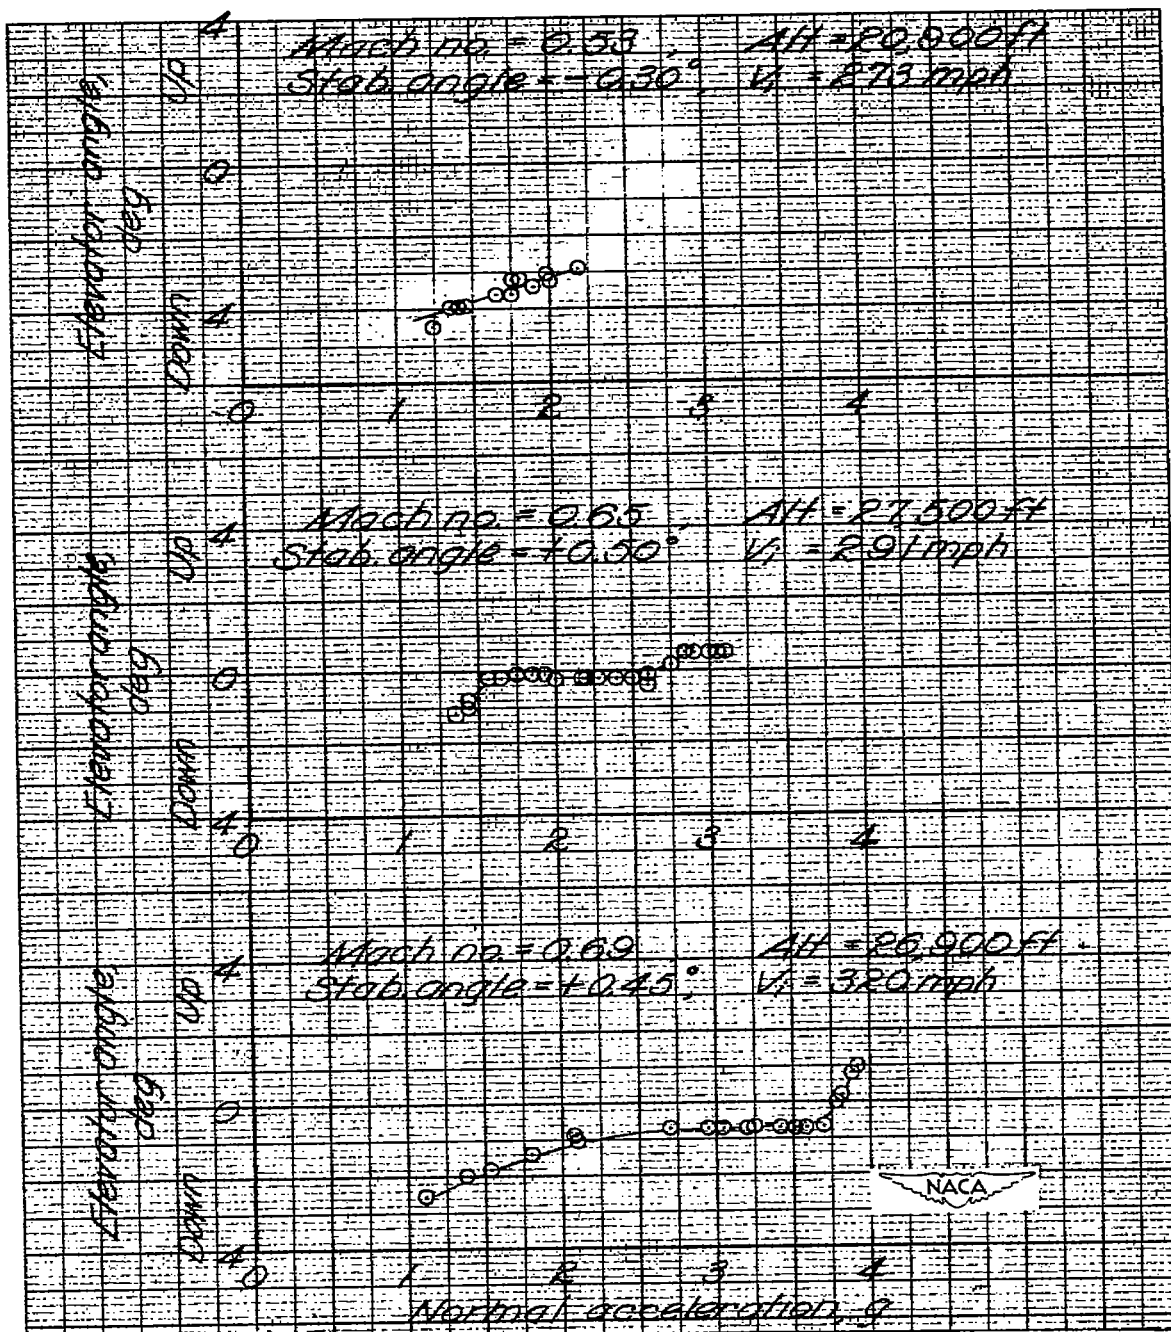 Mach no. = 0.53, Alt = 20,900 ft
Stab. angle = -0.30°, Vi = 273 mph
Elevator angle, deg
Up
Down
4
0
4
0 1 2 3 4
Mach no. = 0.65, Alt = 27,500 ft
Stab. angle = +0.50°, Vi = 291 mph
Elevator angle, deg
Up
Down
4
0
4
0 1 2 3 4
Mach no. = 0.69 Alt = 26,900 ft.
Stab. angle = +0.45°, Vi = 320 mph
Elevator angle, deg
Up
Down
4
0
4
0 1 2 3 4
Normal acceleration, g
NACA